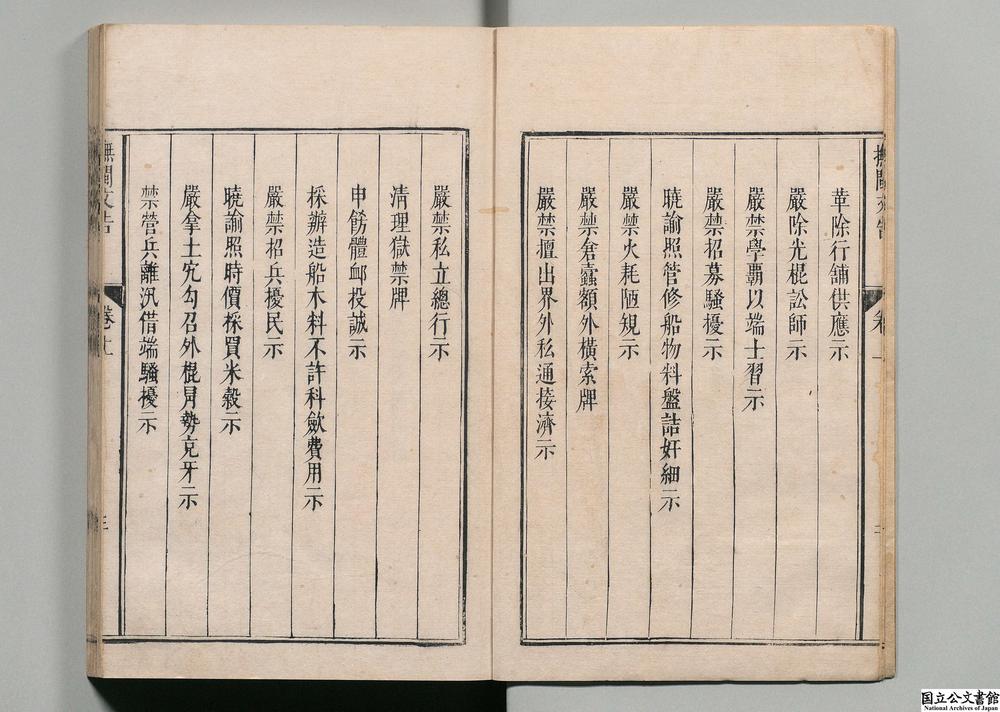 革除行舖供應示
嚴除光棍訟師示
嚴禁學霸以端士習示
嚴禁招募騷擾示
曉諭照管修船物料盤詰奸細示
嚴禁火耗陋規示
嚴禁倉蠹額外橫索牌
嚴禁擅出界外私通接濟示
嚴禁私立總行示
清理獄禁牌
申飭體卹投誠示
採辦造船木料不許科歛費用示
嚴禁招兵擾民示
曉諭照時價採買米穀示
嚴拿土宄勾召外棍冐勢克牙示
禁營兵離汛借端騷擾示
撫閩文告
卷上
三
国立公文書館
National Archives of Japan